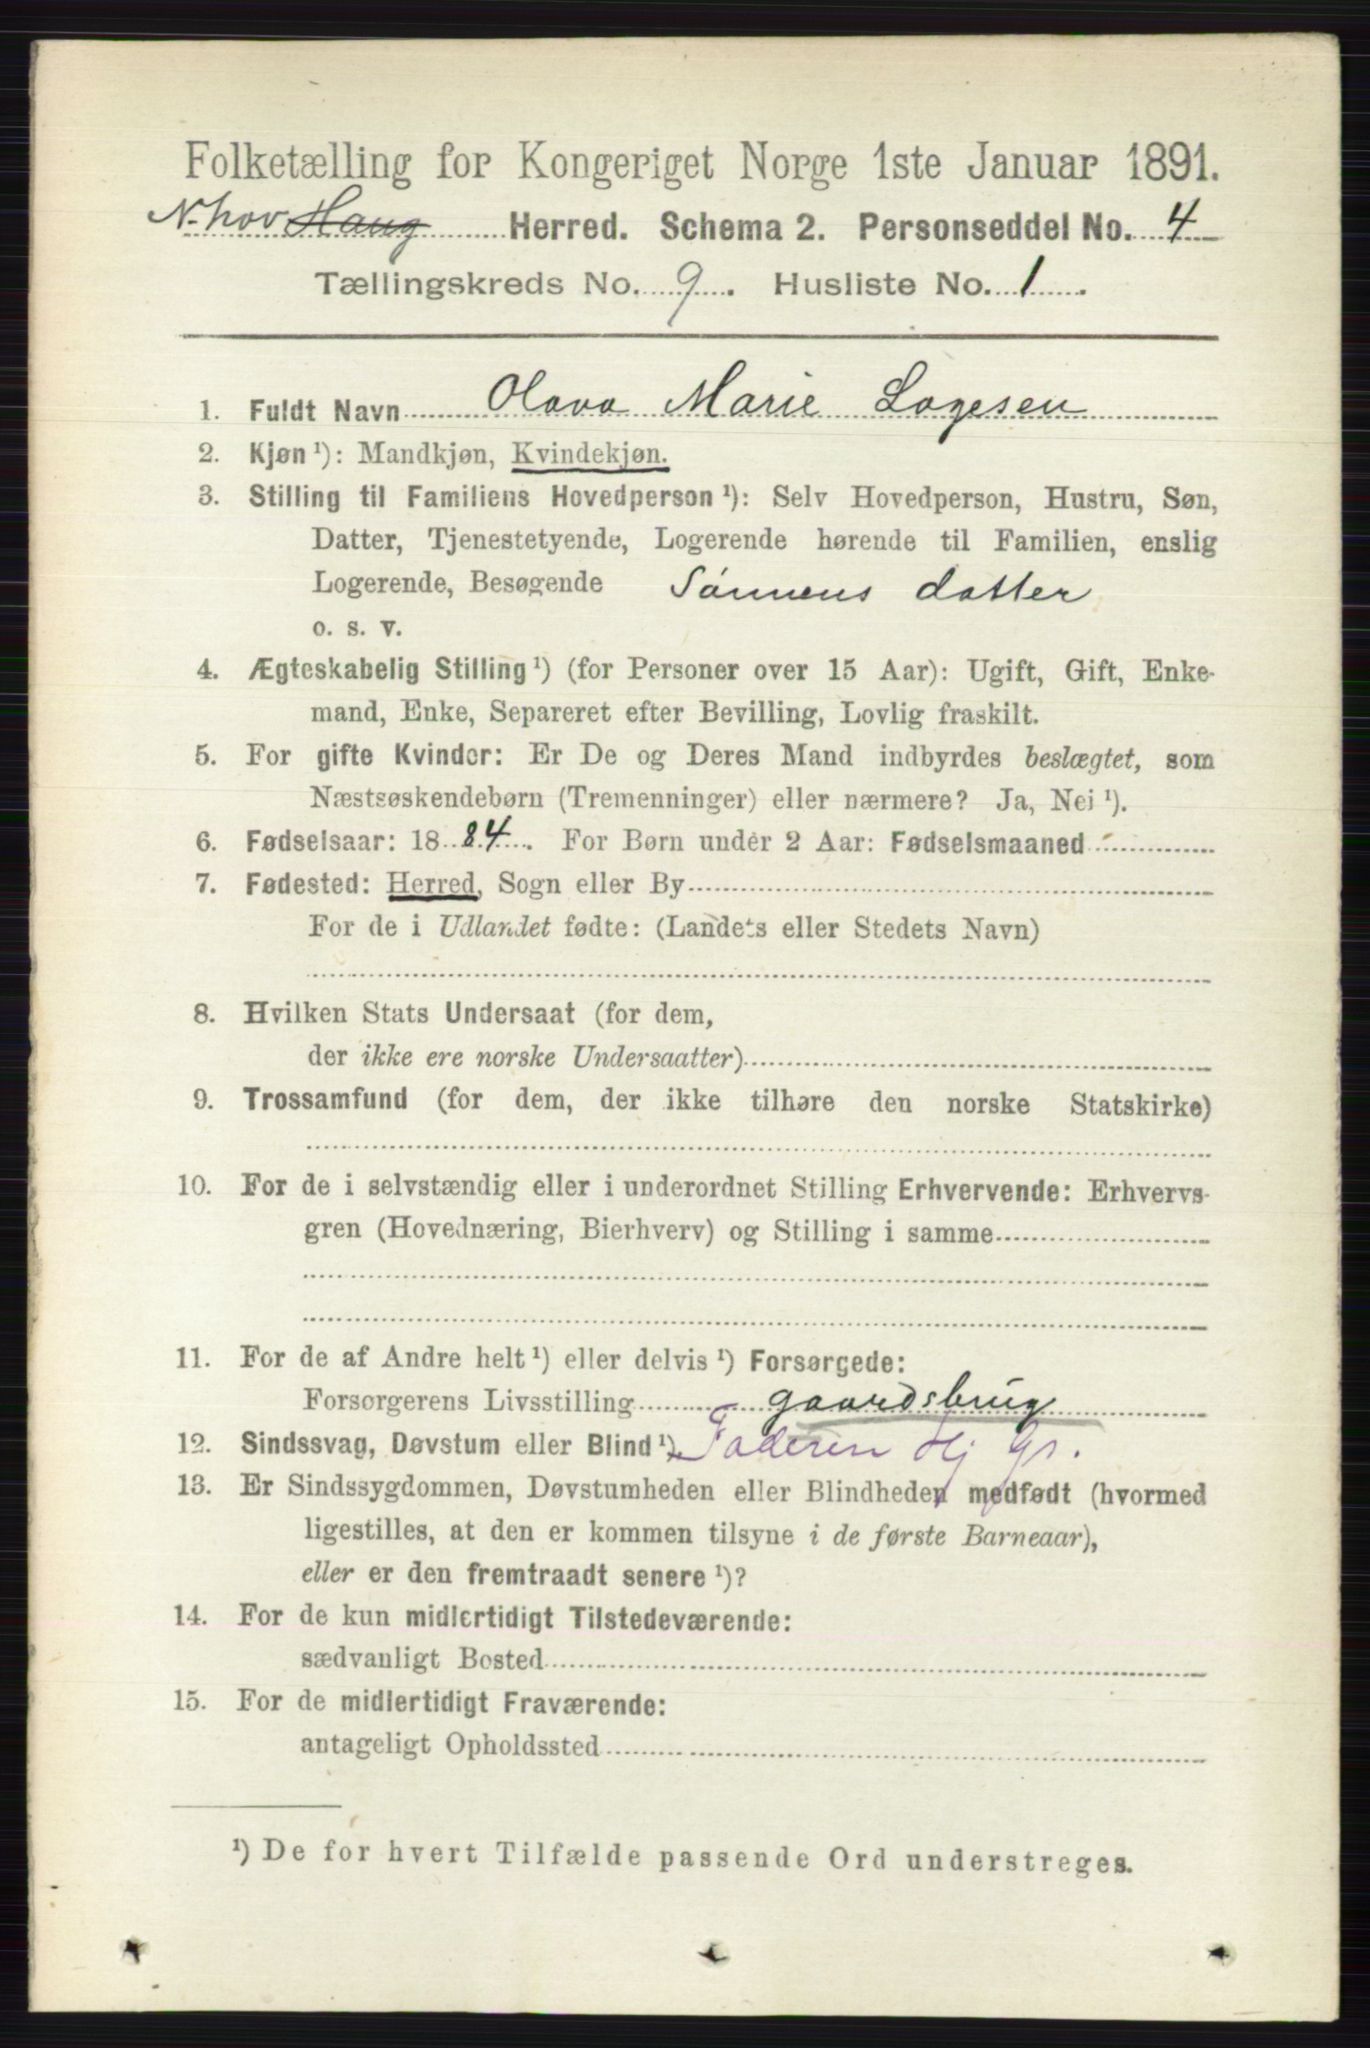 Folketælling for Kongeriget Norge 1ste Januar 1891.
N-hov Haug Herred. Schema 2. Personseddel No. 4
Tællingskreds No. 9. Husliste No. 1.
1. Fuldt Navn Olava Marie Lagesen
2. Kjøn ¹): Mandkjøn, Kvindekjøn.
3. Stilling til Familiens Hovedperson ¹): Selv Hovedperson, Hustru, Søn,
Datter, Tjenestetyende, Logerende hørende til Familien, enslig
Logerende, Besøgende Sønnens datter
o. s. v.
4. Ægteskabelig Stilling ¹) (for Personer over 15 Aar): Ugift, Gift, Enke-
mand, Enke, Separeret efter Bevilling, Lovlig fraskilt.
5. For gifte Kvinder: Er De og Deres Mand indbyrdes beslægtet, som
Næstsøskendebørn (Tremenninger) eller nærmere? Ja, Nei ¹).
6. Fødselsaar: 1884. For Børn under 2 Aar: Fødselsmaaned
7. Fødested: Herred, Sogn eller By
For de i Udlandet fødte: (Landets eller Stedets Navn)
8. Hvilken Stats Undersaat (for dem,
der ikke ere norske Undersaatter)
9. Trossamfund (for dem, der ikke tilhøre den norske Statskirke)
10. For de i selvstændig eller i underordnet Stilling Erhvervende: Erhvervs-
gren (Hovednæring, Bierhverv) og Stilling i samme
11. For de af Andre helt ¹) eller delvis ¹) Forsørgede:
Forsørgerens Livsstilling gaardsbrug
12. Sindssvag, Døvstum eller Blind ¹). Faderen Hj Gr.
13. Er Sindssygdommen, Døvstumheden eller Blindheden medfødt (hvormed
ligestilles, at den er kommen tilsyne i de første Barneaar),
eller er den fremtraadt senere ¹)?
14. For de kun midlertidigt Tilstedeværende:
sædvanligt Bosted
15. For de midlertidigt Fraværende:
antageligt Opholdssted
¹) De for hvert Tilfælde passende Ord understreges.